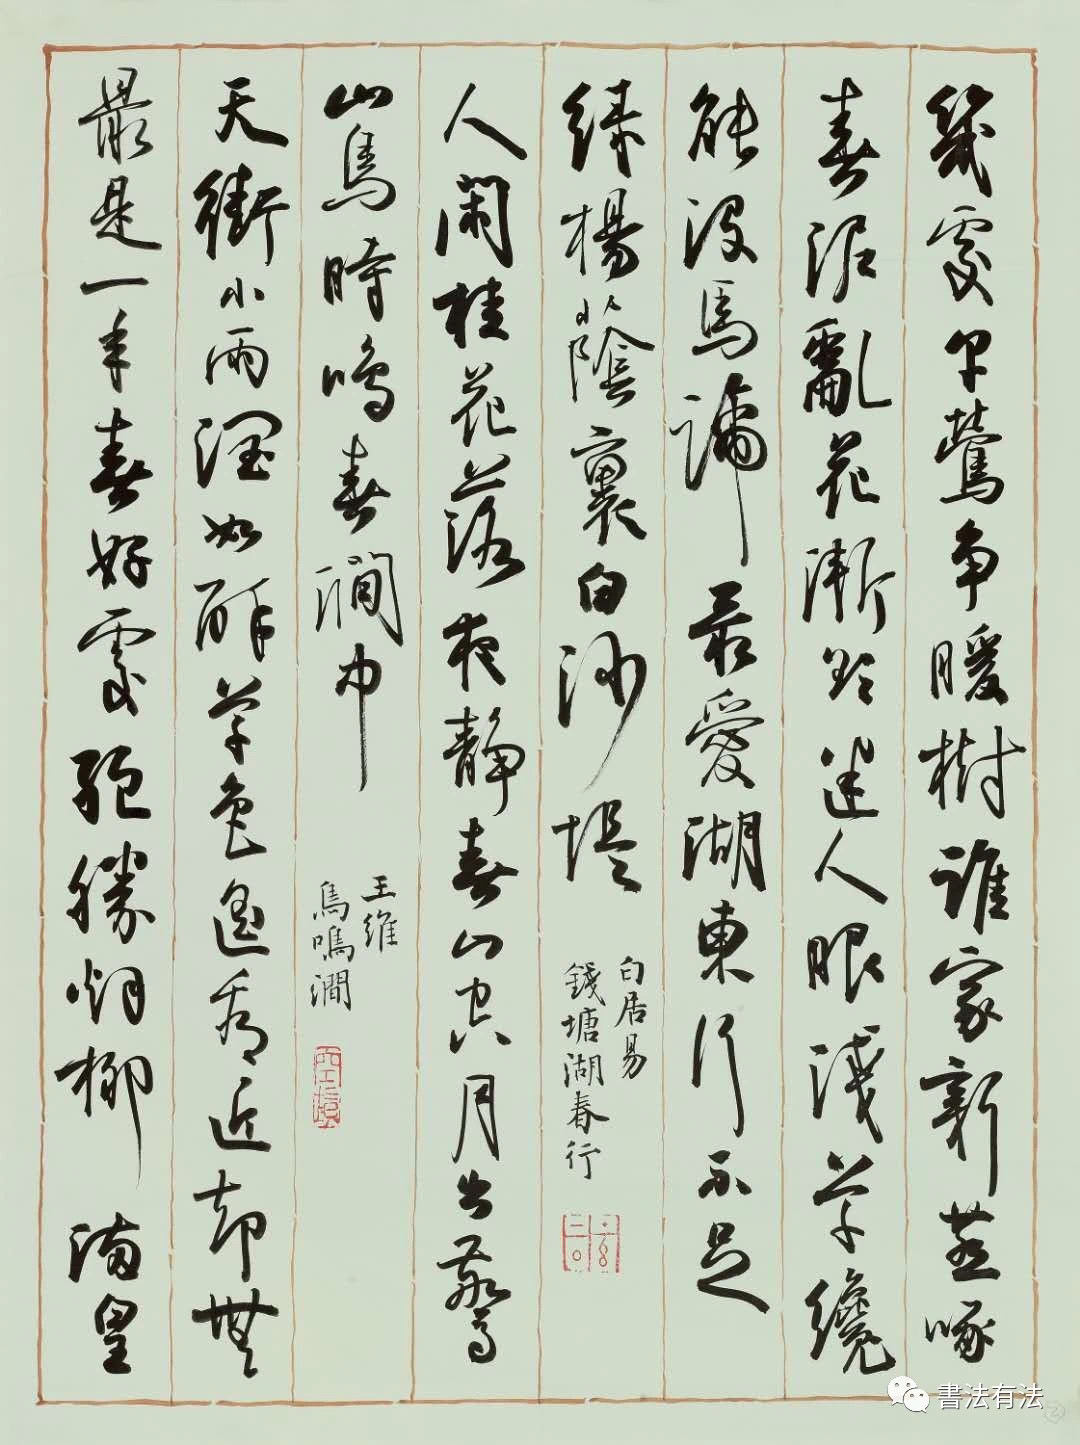 幾處早鶯争暖樹誰家新燕啄
春泥亂花漸欲迷人眼淺草纔
能沒馬蹄最愛湖東行不足
綠楊蔭裏白沙堤
白居易
錢塘湖春行
人閑桂花落夜靜春山空月出驚
山鳥時鳴春澗中
王維
鳥鳴澗
天街小雨潤如酥草色遙看近却無
最是一年春好處絕勝烟柳滿皇
書法有法